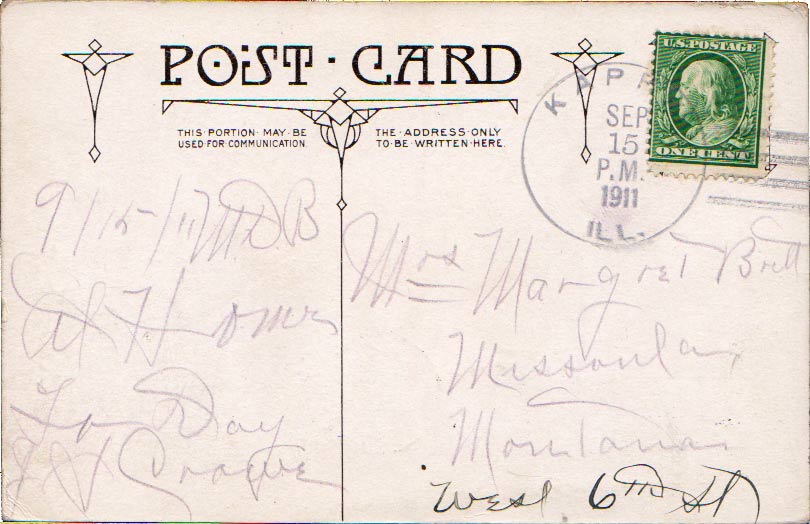 POST · CARD
THIS · PORTION · MAY · BE
USED · FOR · COMMUNICATION
THE · ADDRESS · ONLY
TO · BE · WRITTEN · HERE.
U.S. POSTAGE
ONE CENT
KAPPA
SEP
15
P.M.
1911
ILL.
9/15-/11 M D B
At Home
To Day
Mrs Margret Britt
Missoula
Montana
West 6TH St